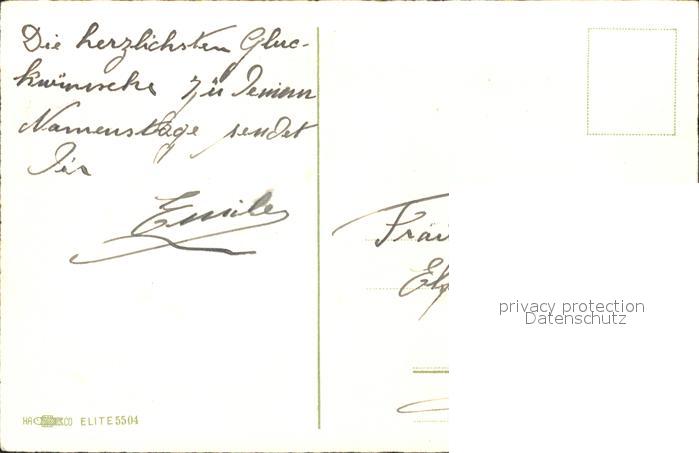 Die herzlichsten Glüc-
kwünsche zu Deinem
Namenstage sendet
Dir
Emile
Fräu
privacy protection
Datenschutz
ELITE 5504